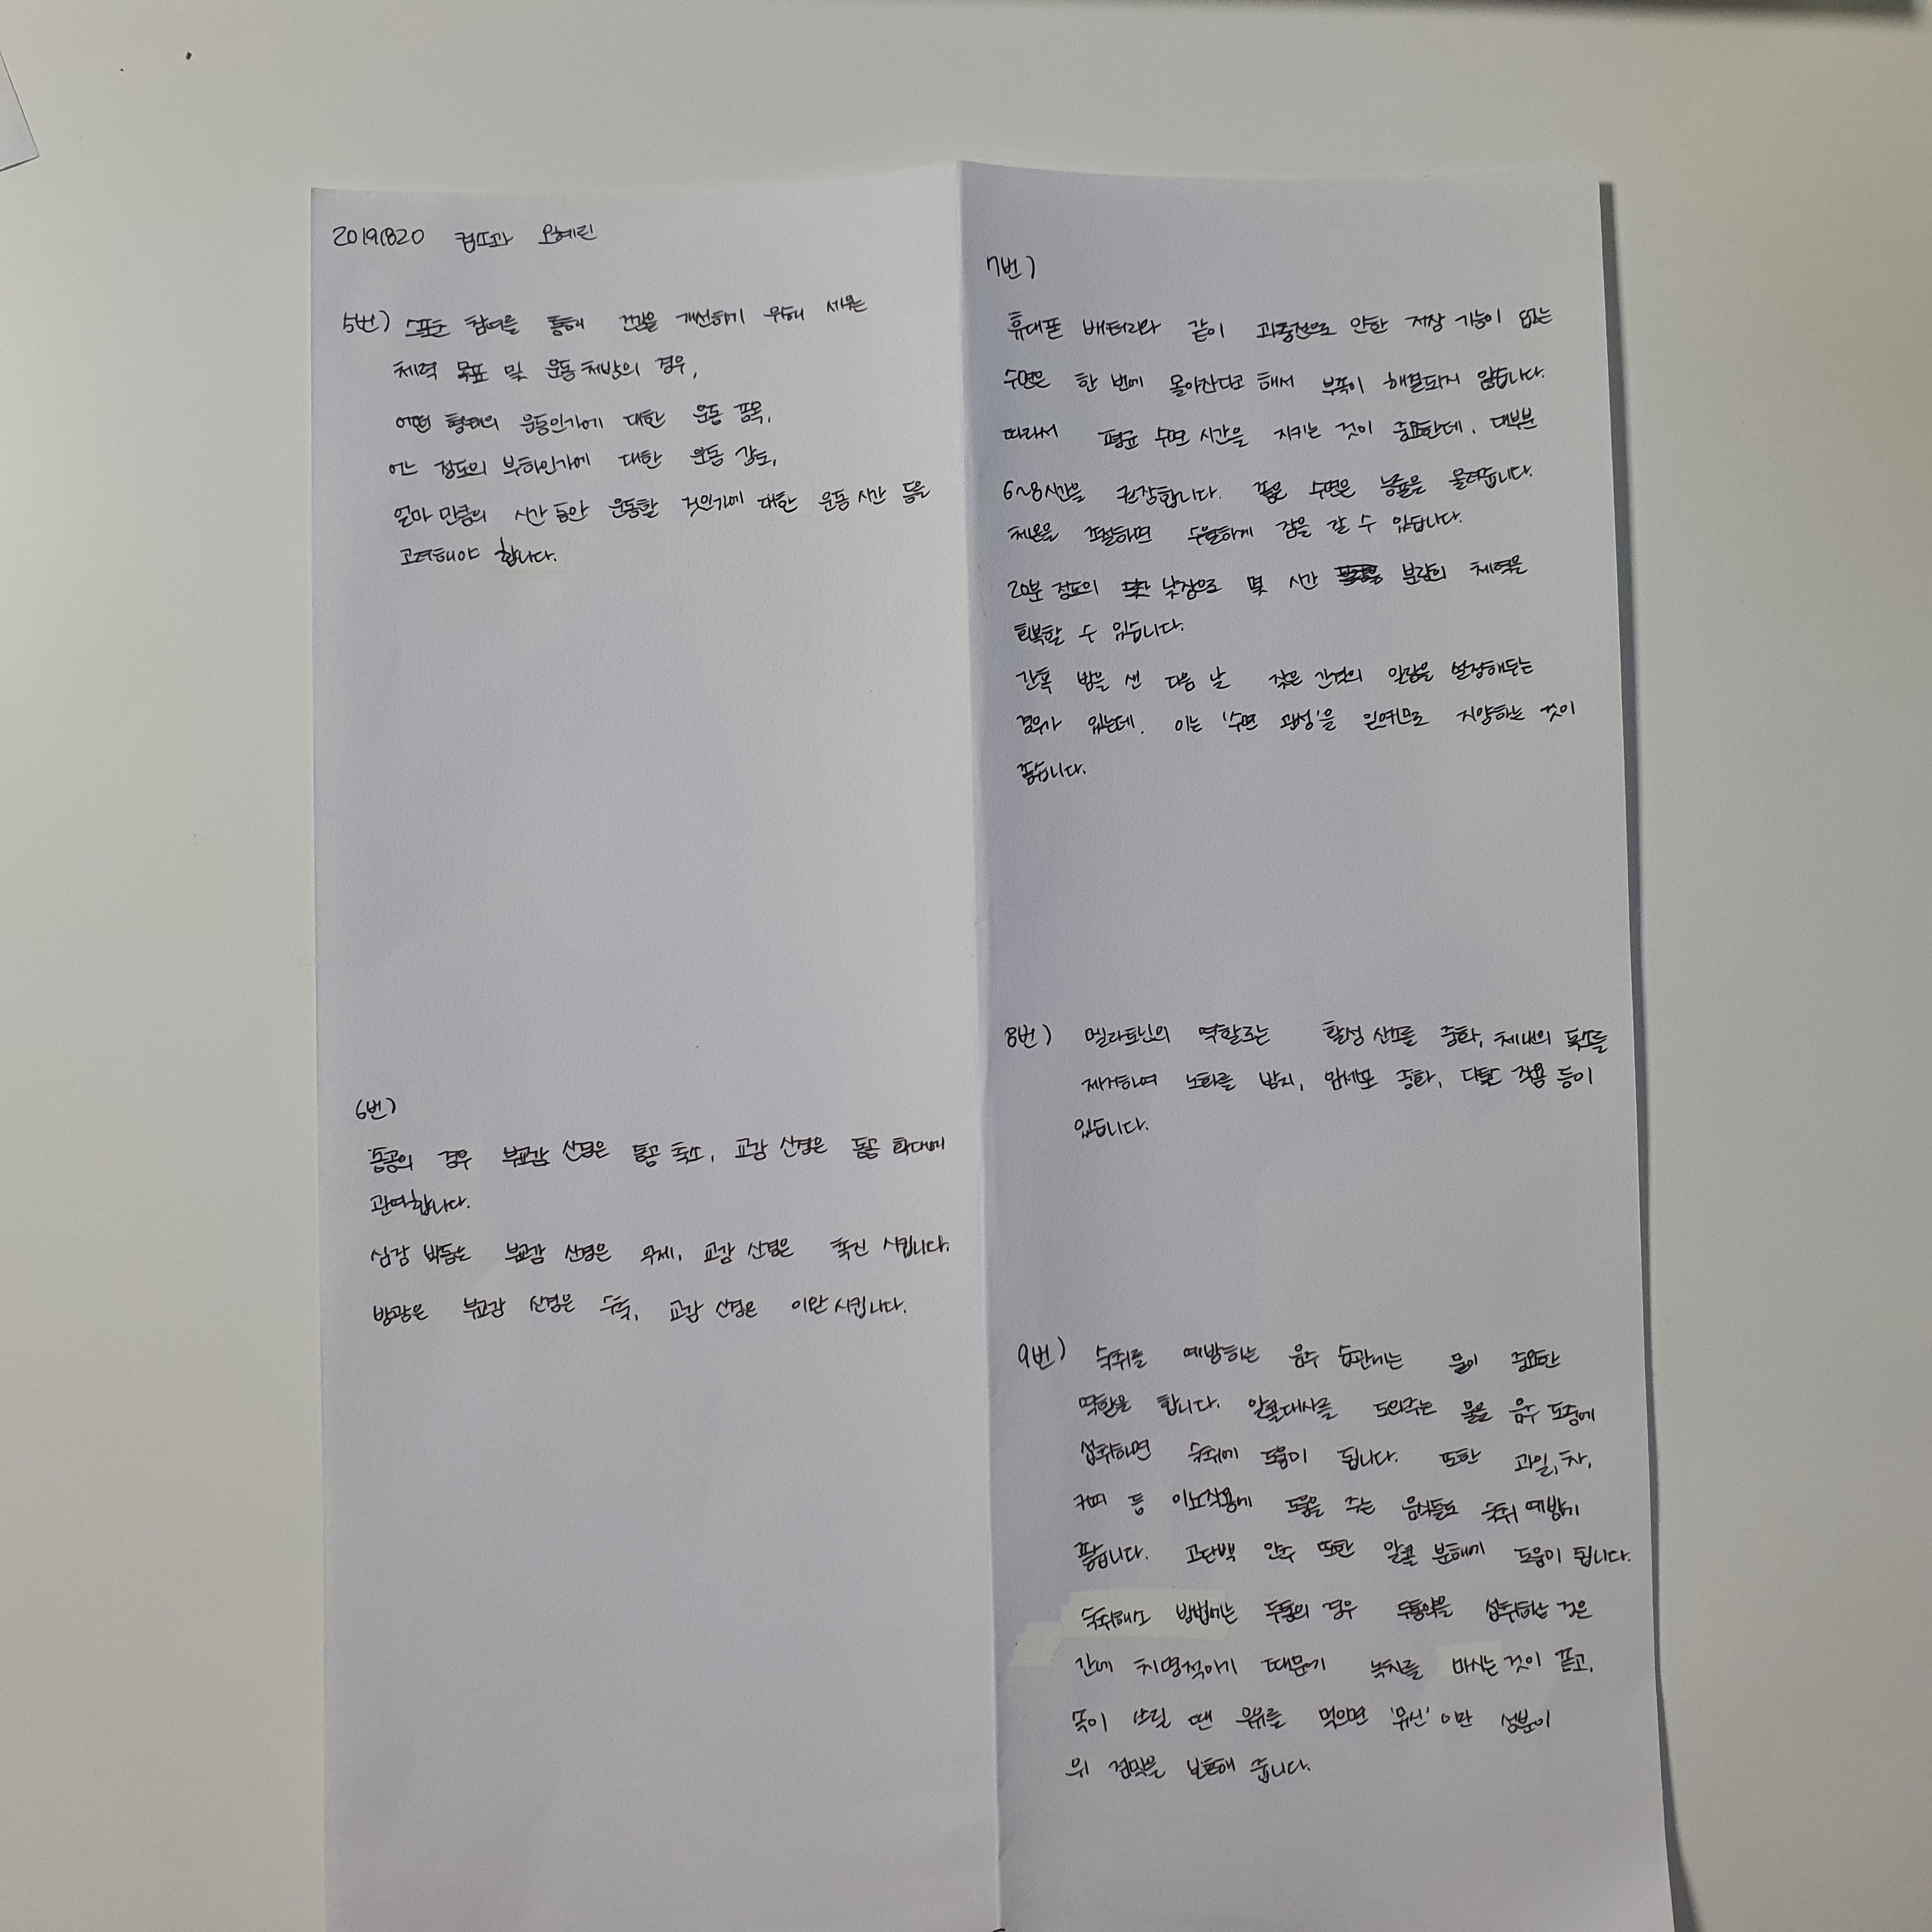 20191820 컴소과 오혜린
5번) 스포츠 참여를 통해 건강을 개선하기 위해 세우는
체력 목표 및 운동 처방의 경우,
어떤 형태의 운동인가에 대한 운동 종목,
어느 정도의 부하인가에 대한 운동 강도,
얼마 만큼의 시간 동안 운동할 것인가에 대한 운동 시간 등을
고려해야 합니다.
6번)
동공의 경우 부교감 신경은 동공 축소, 교감 신경은 동공 확대에
관여합니다.
심장 박동는 부교감 신경은 억제, 교감 신경은 촉진 시킵니다.
방광은 부교감 신경은 수축, 교감 신경은 이완 시킵니다.
7번)
휴대폰 배터리와 같이 과충전으로 인한 저장 기능이 없는
수면은 한 번에 몰아잔다고 해서 부족이 해결되지 않습니다.
따라서 평균 수면 시간을 지키는 것이 중요한데, 대부분
6~8시간을 권장합니다. 좋은 수면은 능률을 올려줍니다.
체온을 조절하면 수월하게 잠을 잘 수 있습니다.
20분 정도의 낮잠으로 몇 시간 분량의 체력을
회복할 수 있습니다.
간혹 밤을 샌 다음 날 잦은 간격의 알람을 설정해두는
경우가 있는데, 이는 '수면 관성'을 일으키므로 지양하는 것이
좋습니다.
8번) 멜라토닌의 역할로는 활성 산소를 중화, 체내의 독소를
제거하여 노화를 방지, 암세포 중화, 다탄 작용 등이
있습니다.
9번) 숙취를 예방하는 음주 습관에는 물이 중요한
역할을 합니다. 알콜대사를 도와주는 물을 음주 도중에
섭취하면 숙취에 도움이 됩니다. 또한 과일, 차,
커피 등 이뇨작용에 도움을 주는 음식들도 숙취 예방에
좋습니다. 고단백 안주 또한 알콜 분해에 도움이 됩니다.
숙취해소 방법에는 두통의 경우 두통약을 섭취하는 것은
간에 치명적이기 때문에 녹차를 마시는 것이 좋고,
속이 쓰릴 땐 우유를 먹으면 '뮤신' 이란 성분이
위 점막을 보호해 줍니다.